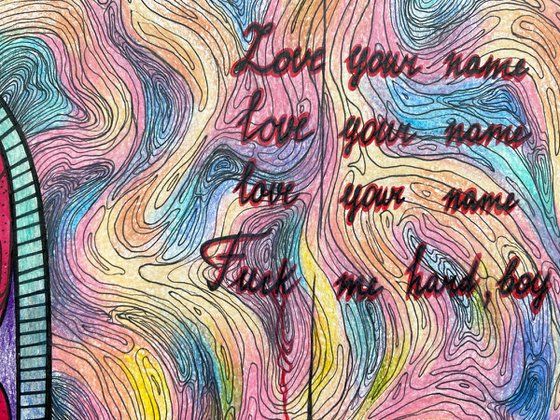 Love your name
love your name
love your name
Fuck me hard, boy